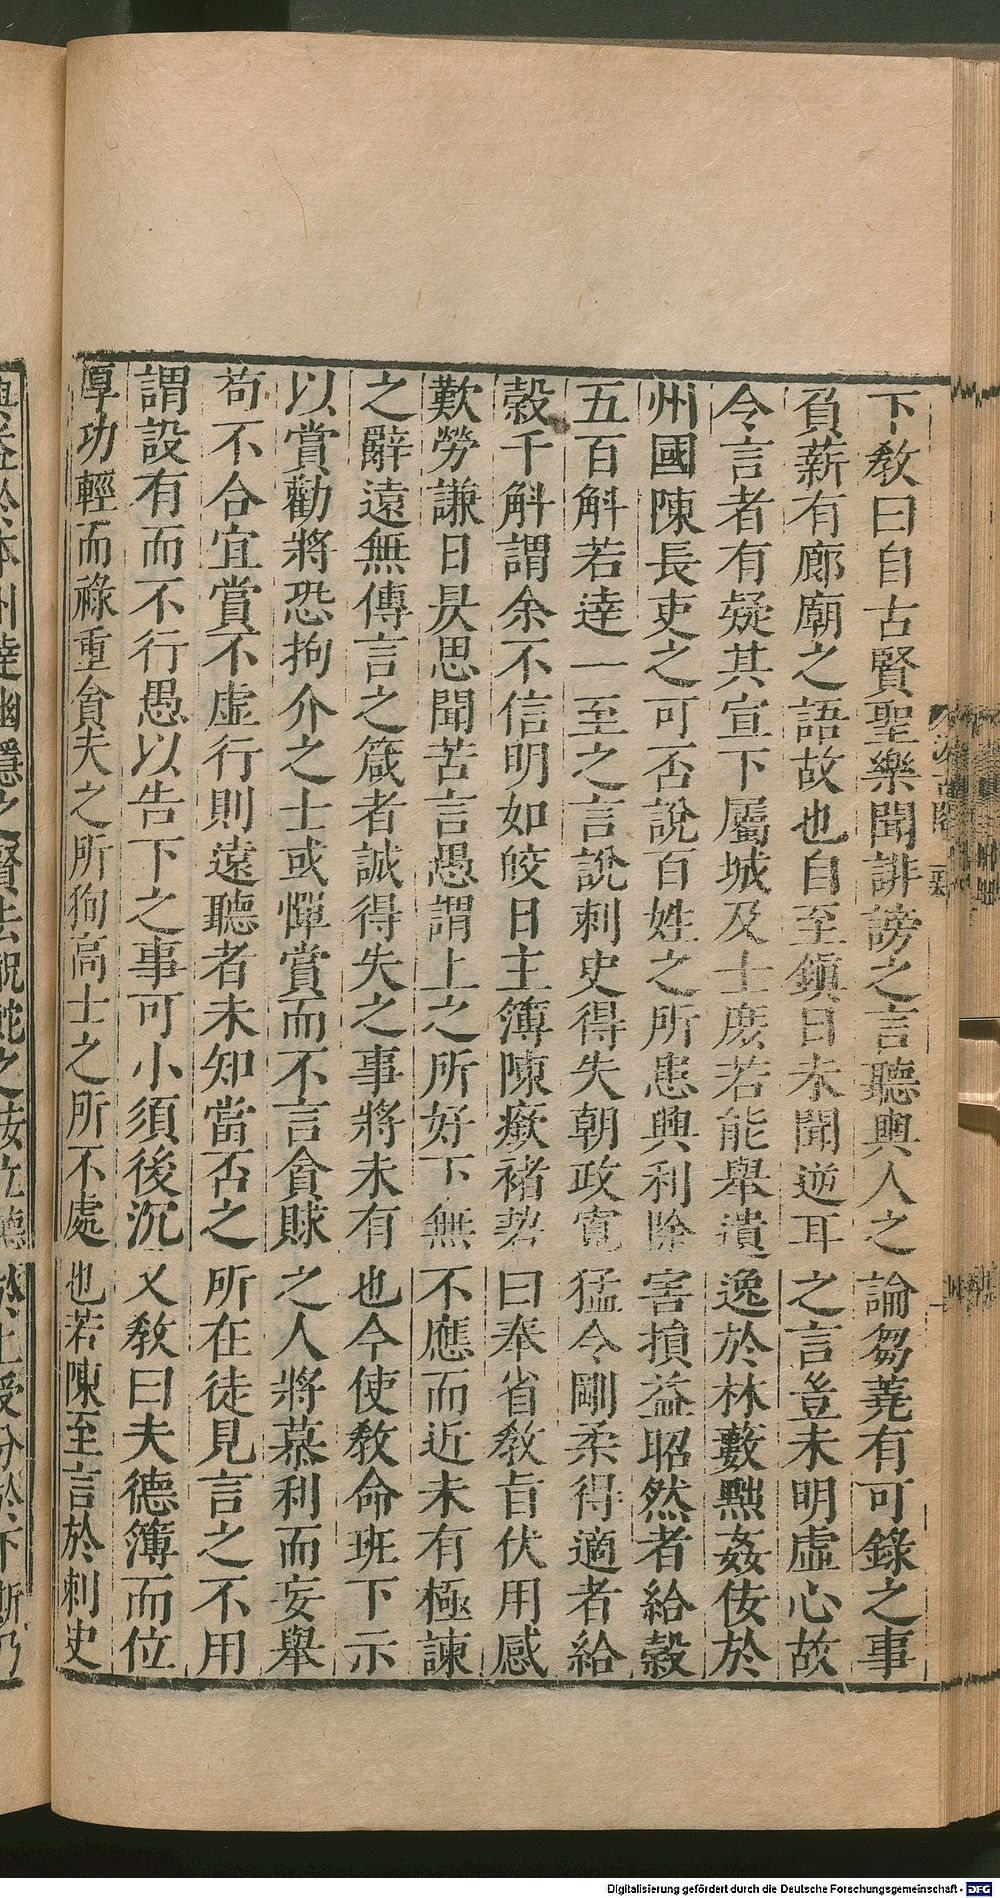 下教曰自古賢聖樂聞誹謗之言聽輿人之論芻蕘有可錄之事
負薪有廊廟之語故也自至鎮日未聞逆耳之言豈未明虛心故
令言者有疑其宣下屬城及士庶若能舉遺逸於林藪黜姦佞於
州國陳長吏之可否說百姓之所患興利除害損益昭然者給穀
五百斛若達一至之言說刺史得失朝政寬猛令剛柔得適者給
穀千斛謂余不信明如皎日主簿陳廞褚䂮曰奉省教旨伏用感
歎勞謙日昃思聞苦言愚謂上之所好下無不應而近未有極諫
之辭遠無傳言之箴者誠得失之事將未有也今使教命班下示
以賞勸將恐拘介之士或憚賞而不言貪賕之人將慕利而妄舉
苟不合宜賞不虛行則遠聽者未知當否之所在徒見言之不用
謂設有而不行愚以告下之事可小須後沉又教曰夫德簿而位
厚功輕而祿重貪夫之所徇高士之所不處也若陳至言於刺史
Digitalisierung gefördert durch die Deutsche Forschungsgemeinschaft - DFG